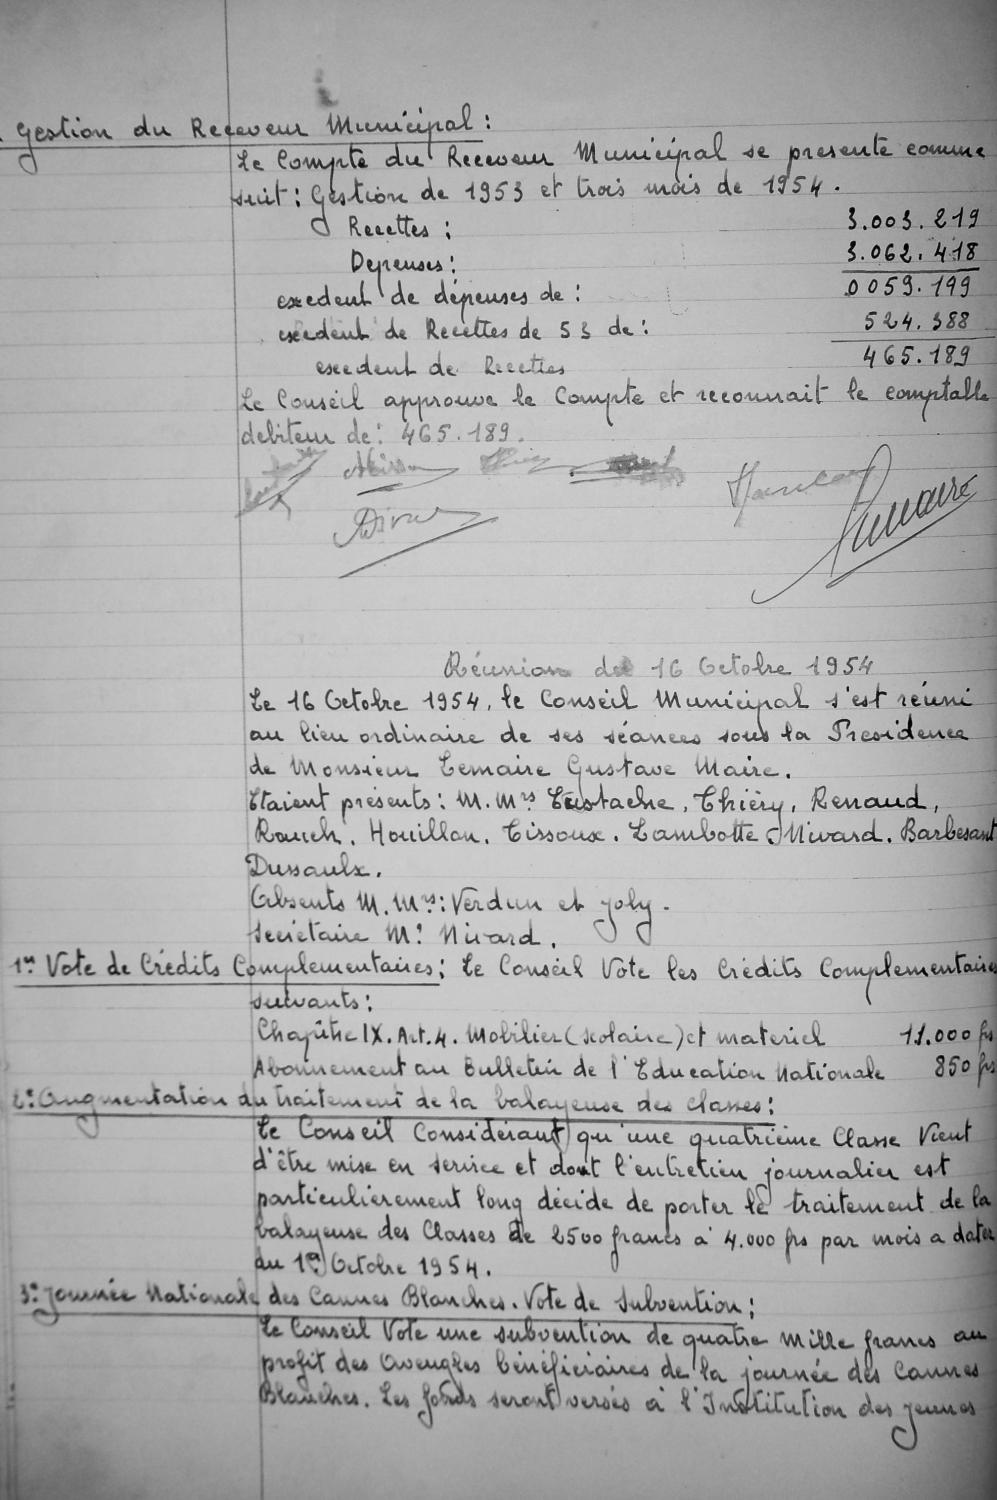 Gestion du Receveur Municipal :
Le Compte du Receveur Municipal se presente comme
suit : Gestion de 1953 et trois mois de 1954.
Recettes : 3.003.219
Depenses : 3.062.418
exedent de dépenses de : 0059.199
exedent de Recettes de 53 de : 524.388
exedent de Recettes 465.189
Le Conseil approuve le Compte et reconnait le comptable
debiteur de : 465.189.
Lemaire
Réunion du 16 Octobre 1954
Le 16 Octobre 1954, le Conseil Municipal s'est réuni
au lieu ordinaire de ses séances sous la Presidence
de Monsieur Lemaire Gustave Maire.
Etaient présents : M.Mrs Eustache, Thiéry, Renaud,
Rouch, Houillon, Tissoux, Lambotte, Nivard, Barbesant
Dussaulx.
Absents M.Mrs : Verdun et Joly.
Secrétaire Mr Nivard.
1er Vote de Crédits Complementaires : Le Conseil Vote les Crédits Complementaires
suivants :
Chapître IX. Art. 4. Mobilier (scolaire) et materiel 11.000 frs
Abonnement au Bulletin de l'Education Nationale 850 frs
2e : Augmentation du traitement de la balayeuse des classes :
Le Conseil Considérant qu'une quatrième Classe Vient
d'être mise en service et dont l'entretien journalier est
particulièrement long décide de porter le traitement de la
balayeuse des Classes de 2500 francs à 4.000 frs par mois a dater
du 1er Octobre 1954.
3e : Journée Nationale des Cannes Blanches. Vote de Subvention :
Le Conseil Vote une subvention de quatre mille francs au
profit des Aveugles bénéficiaires de la journée des Cannes
Blanches. Les fonds seront versés à l'Institution des Jeunes